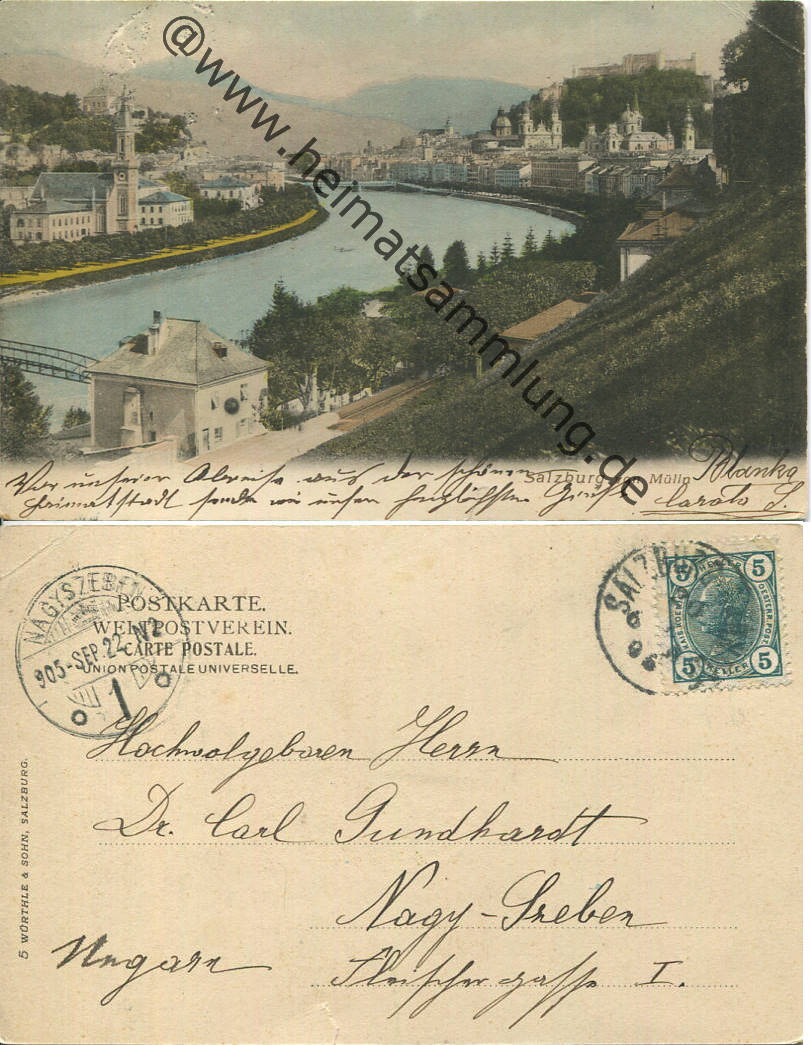 @www.heimatsammlung.de
Salzburg von Mülln
Vor unserer Abreise aus der schönen
Heimatstadt senden wir unsere herzlichsten Grüße
Blanka
NAGYSZEBEN
905-SEP.22-N2
1
POSTKARTE.
WELTPOSTVEREIN.
CARTE POSTALE.
UNION POSTALE UNIVERSELLE.
SALZBURG
5 HELLER 5
KAIS. KOEN. OESTERR. POST.
5 HELLER 5
Hochwolgeboren Herrn
Dr. Carl Gundhardt
Nagy-Szeben
Ungarn
Fleischergasse I.
5 WÜRTHLE & SOHN, SALZBURG.